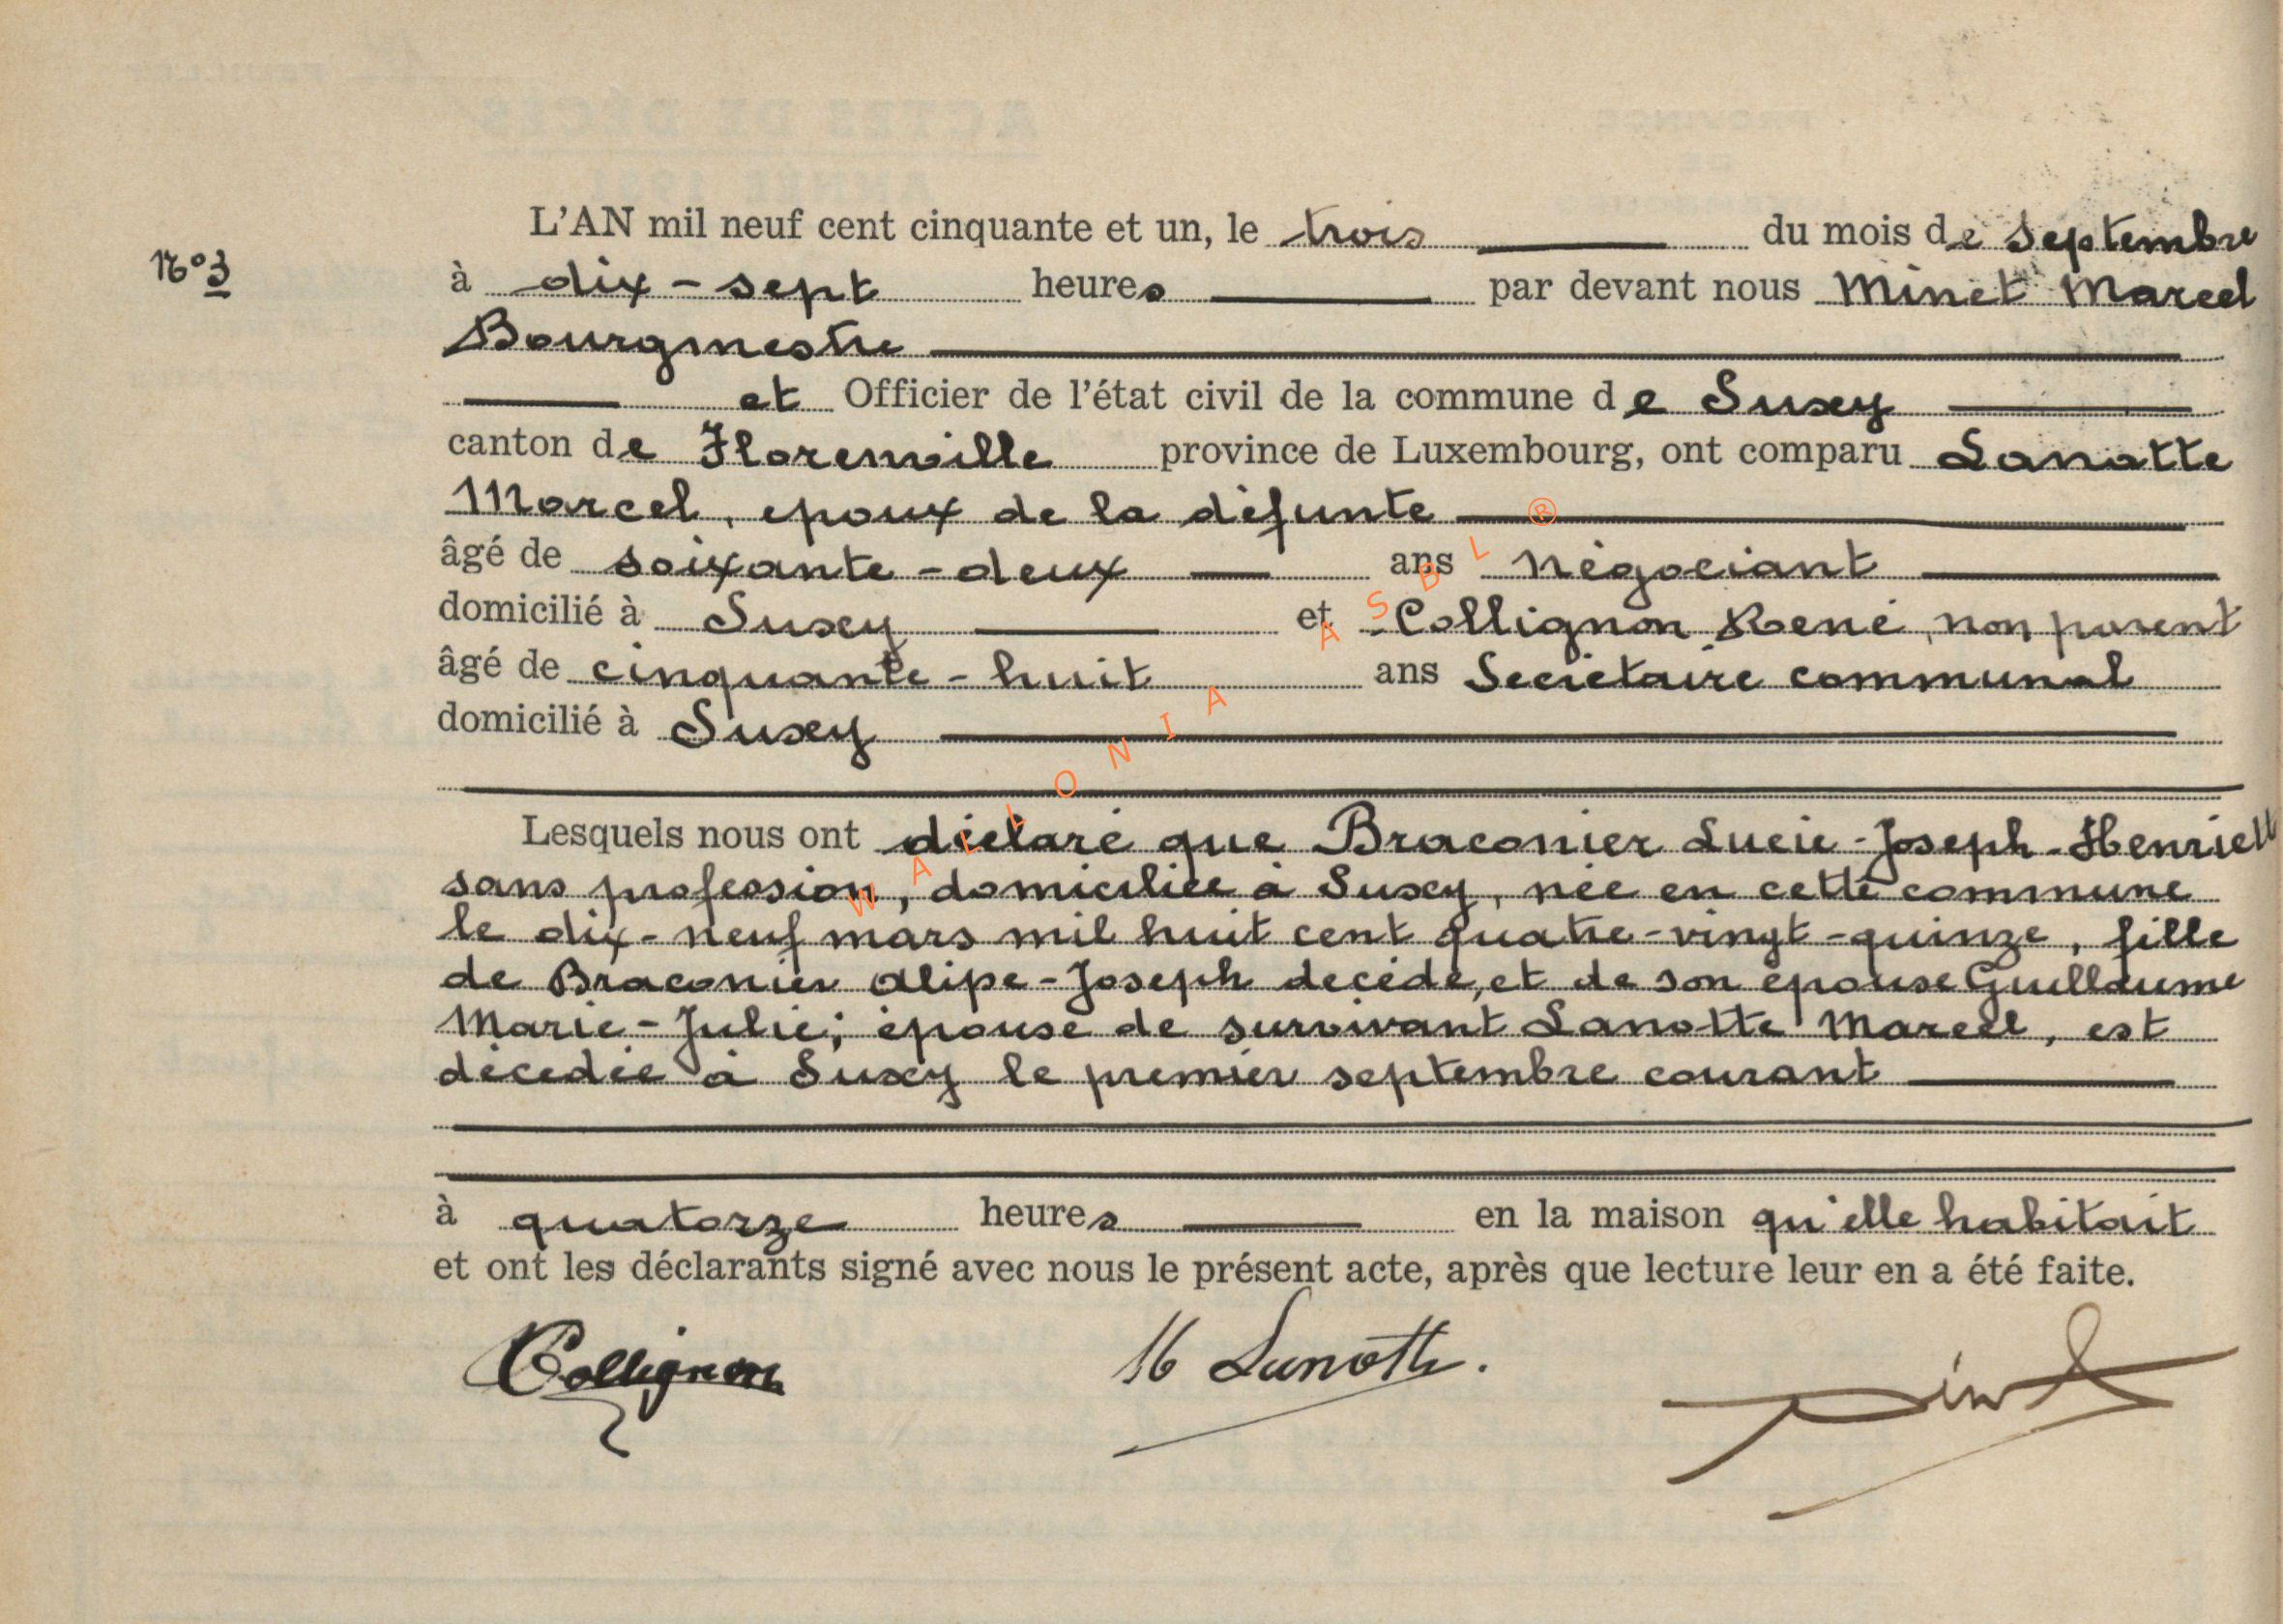 N° 3
L'AN mil neuf cent cinquante et un, le trois du mois de septembre
à dix-sept heures par devant nous Minet Marcel
Bourgmestre
et Officier de l'état civil de la commune de Suxy
canton de Florenville province de Luxembourg, ont comparu Lanotte
Marcel, epoux de la défunte
âgé de soixante-deux ans négociant
domicilié à Suxy et Collignon René, non parent
âgé de cinquante-huit ans Secrétaire communal
domicilié à Suxy
Lesquels nous ont déclaré que Braconier Lucie-Joseph-Henriett
sans profession, domiciliée à Suxy, née en cette commune
le dix-neuf mars mil huit cent quatre-vingt-quinze, fille
de Braconier Alipe-Joseph décédé, et de son épouse Guillaume
Marie-Julie; épouse de survivant Lanotte Marcel, est
décédée à Suxy le premier septembre courant
à quatorze heures en la maison qu'elle habitait
et ont les déclarants signé avec nous le présent acte, après que lecture leur en a été faite.
Collignon M Lanotte. Minet
WALLONIA ASBL ®